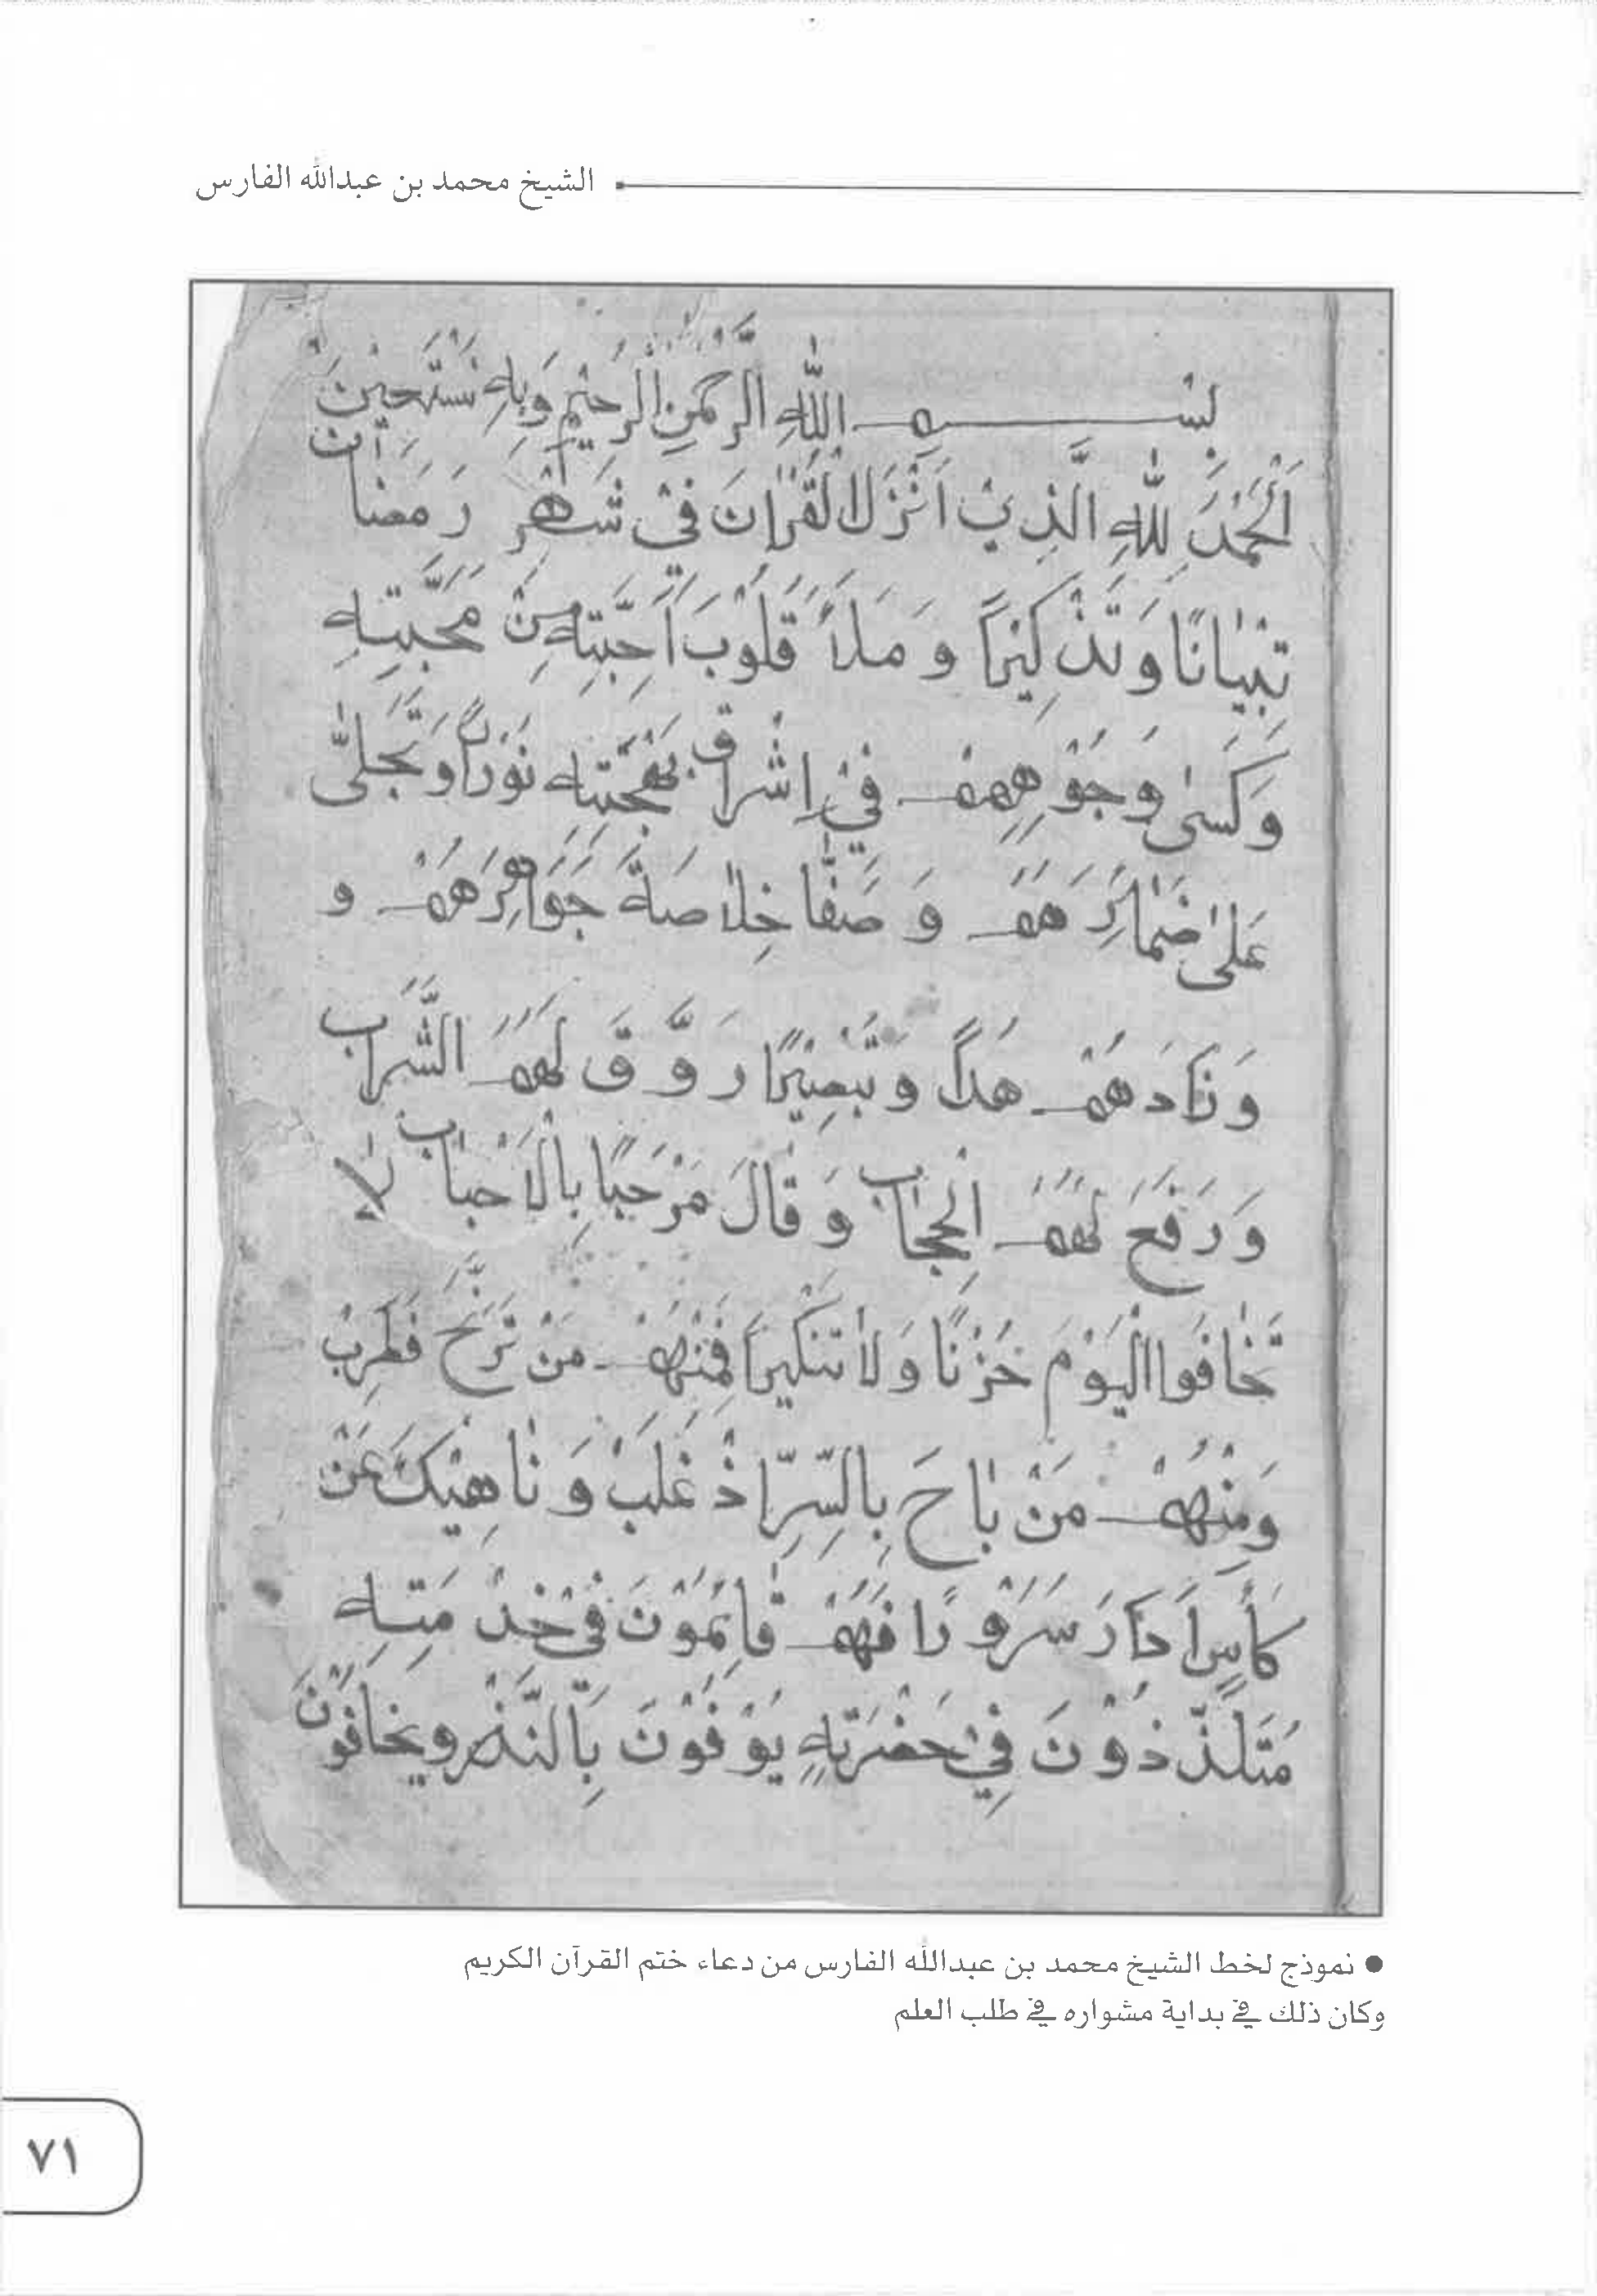 الشيخ محمد بن عبدالله الفارس
بِسْــــــمِ اللّٰهِ الرَّحْمٰنِ الرَّحِيْمِ وَبِهِ نَسْتَعِيْنَ
اَلْحَمْدُ لِلّٰهِ الَّذِيْ اَنْزَلَ الْقُرْاٰنَ فِيْ شَهْرِ رَمَضَانَ
تِبْيَانًا وَتَذْكِيْرًا وَمَلَأَ قُلُوْبَ اَحِبَّتِهِ مِنْ مَحَبَّتِهِ
وَكَسٰى وُجُوْهِهِمْ فِيْ اِشْرَاقِ نُوْرًا وَتَجَلّٰى
عَلٰى ضَمَائِرَهُمْ وَصَفَّا خِلَاصَةَ جَوَاهِرَهُمْ و
وَنَادَهُمْ هُدًا وَتَبْصِيْرًا رَوَّقَ لَهُمُ الشَّرَاب
وَرَفَعَ لَهُمُ الْحِجَاب وَقَالَ مَرْحَبًا بِالْاَحْبَاب لَا
تَخَافُوا الْيَوْمَ حُزْنًا وَلَا تَنْكِيْرًا فَمِنْهُمْ مَنْ تَرَنَّحَ فَطَرِبْ
وَمِنْهُمْ مَنْ بَاحَ بِالسِّرِّ اِذْ غَلَبْ وَنَاهِيْكَ عَنْ
كَأْسٍ اَدَارَ سُرُوْرًا فَهُمْ قَائِمُوْنَ فِيْ خِدْمَتِهِ
مُتَلَذِّذُوْنَ فِيْ حَضْرَتِهِ يُوْفُوْنَ بِالنَّذْرِ وَيَخَافُوْنَ
● نموذج لخط الشيخ محمد بن عبدالله الفارس من دعاء ختم القرآن الكريم
وكان ذلك في بداية مشواره في طلب العلم
٧١